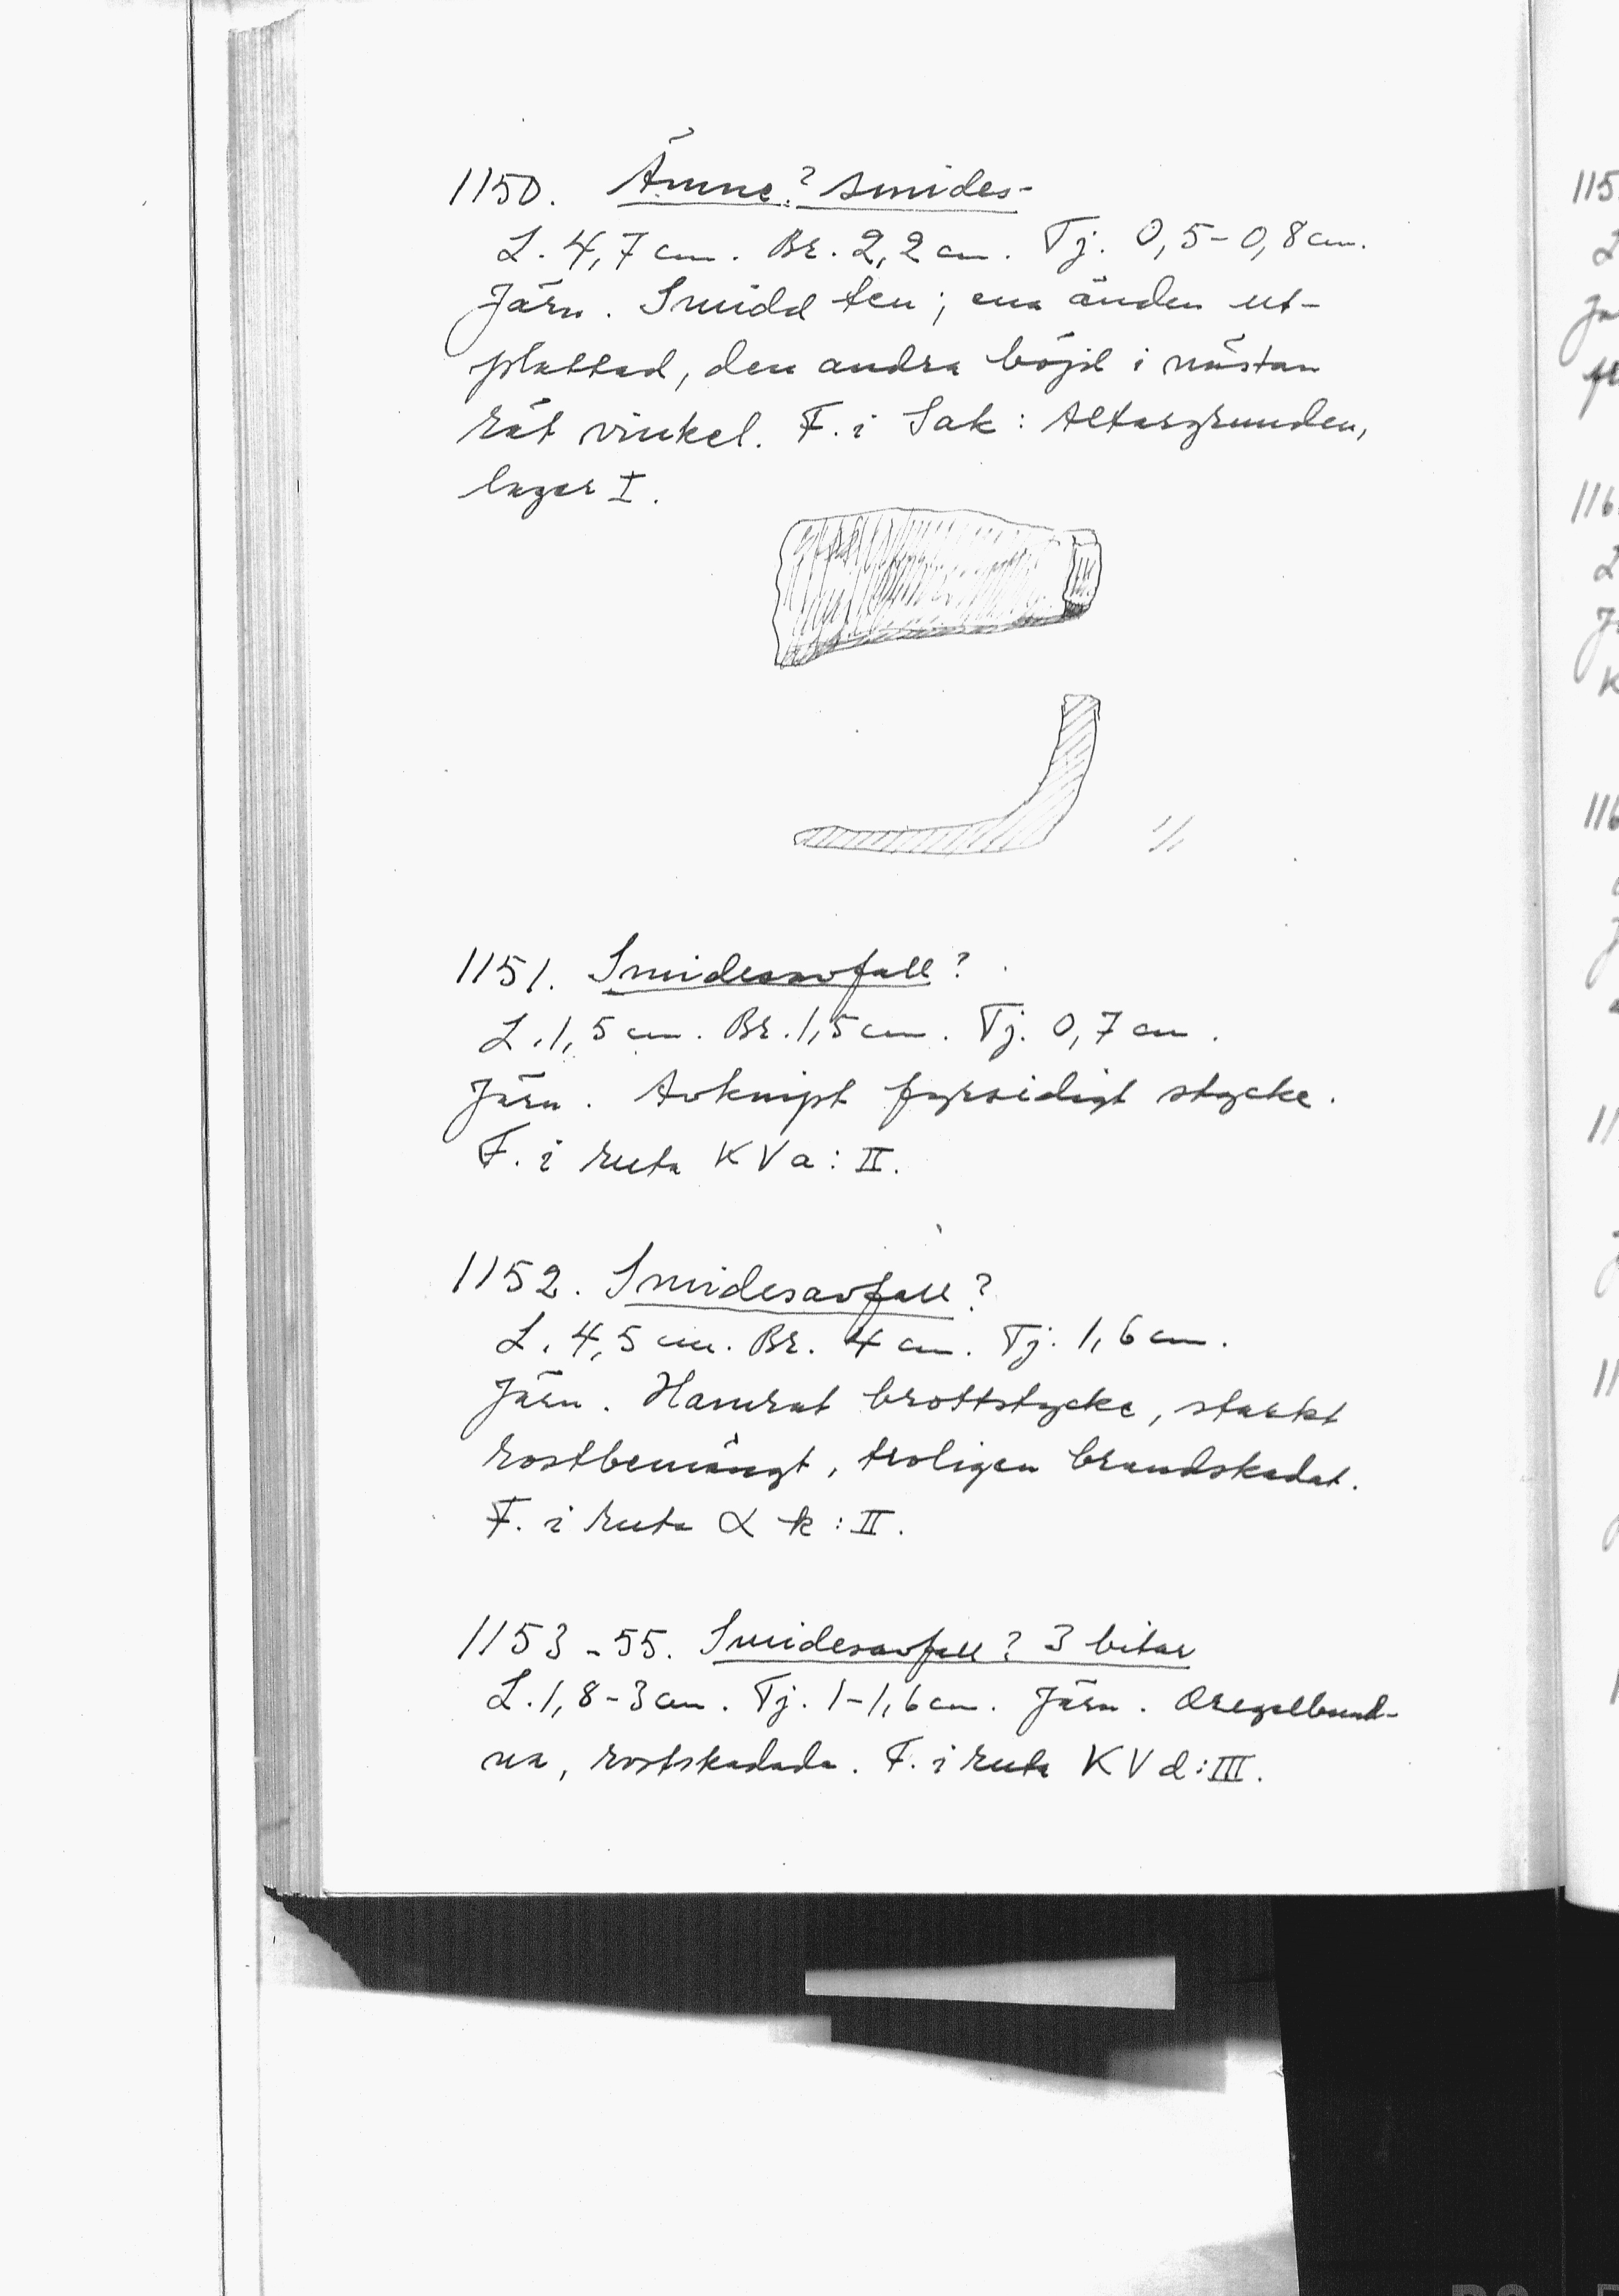 1150. Ämne? smides-
L. 4,7 cm. Br. 2,2 cm. Tj. 0,5-0,8 cm.
Järn. Smidd ten; ena änden ut-
plattad, den andra böjd i nästan
rät vinkel. F. i Sak: Altargrunden,
lager I.
1/1
1151. Smidesavfall?
L. 1,5 cm. Br. 1,5 cm. Tj. 0,7 cm.
Järn. Avknipt fyrsidigt stycke.
F. i ruta KVa: II.
1152. Smidesavfall?
L. 4,5 cm. Br. 4 cm. Tj. 1,6 cm.
Järn. Hamrat brottstycke, starkt
rostbemängt, troligen brandskadat.
F. i ruta α k: II.
1153-55. Smidesavfall? 3 bitar
L. 1,8-3 cm. Tj. 1-1,6 cm. Järn. Oregelbund-
na, rostskadada. F. i ruta KVd: III.